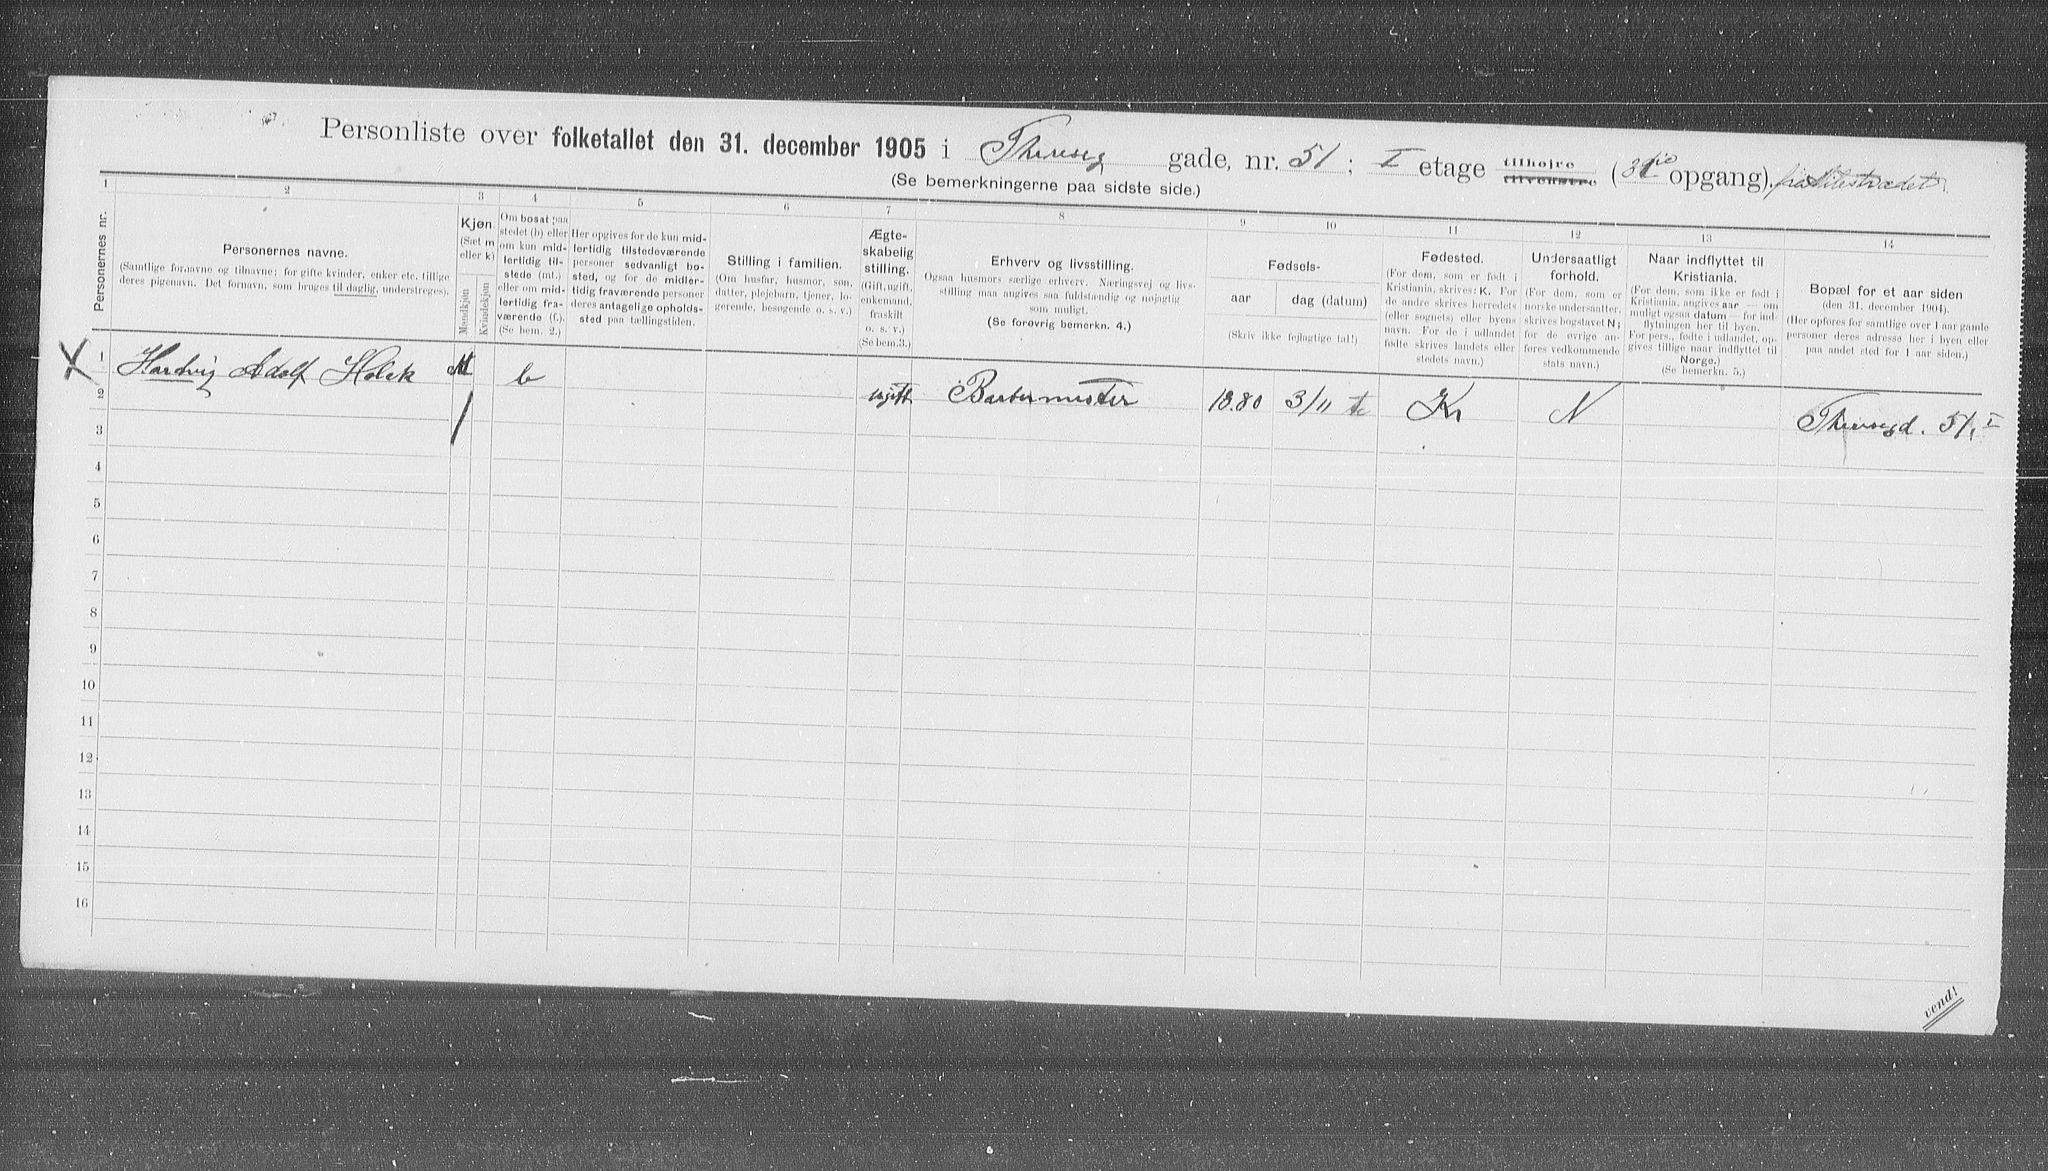 Personliste over folketallet den 31. december 1905 i Thereseg gade, nr. 51; I etage tilhøire tilvenstre (3die opgang). fra
(Se bemerkningerne paa sidste side.)
1 2 3 4 5 6 7 8 9 10 11 12 13 14
Personernes nr.
Personernes navne.
(Samtlige fornavne og tilnavne; for gifte kvinder, enker etc. tillige
deres pigenavn. Det fornavn, som bruges til daglig, understreges).
Kjøn.
(Sæt m
eller k)
Mandkjøn
Kvindekjøn
Om bosat paa
stedet (b) eller
om kun mid-
lertidig til-
stede (mt.)
eller om mid-
lertidig fra-
værende (f.).
(Se bem. 2.)
Her opgives for de kun mid-
lertidig tilstedeværende
personer sedvanligt bo-
sted, og for de midler-
tidig fraværende personer
deres antagelige opholds-
sted paa tællingstiden.
Stilling i familien.
(Om husfar, husmor, søn,
datter, plejebarn, tjener, lo-
gerende, besøgende o. s. v.)
Ægte-
skabelig
stilling.
(Gift, ugift,
enkemand,
fraskilt
o. s. v.)
(Se bem.3.)
Erhverv og livsstilling.
Ogsaa husmors særlige erhverv. Næringsvej og livs-
stilling maa angives saa fuldstændig og nøjagtig
som muligt.
(Se forøvrig bemerkn. 4.)
Fødsels-
aar
dag (datum)
(Skriv ikke fejlagtige tal!)
Fødested.
(For dem, som er født i
Kristiania, skrives: K. For
de andre skrives herredets
(eller sognets) eller byens
navn. For de i udlandet
fødte skrives landets eller
stedets navn.)
Undersaatligt
forhold.
(For dem, som er
norske undersatter,
skrives bogstavet N;
for de øvrige an-
føres vedkommende
stats navn.)
Naar indflyttet til
Kristiania.
(For dem, som ikke er født i
Kristiania, angives aar — om
muligt ogsaa datum — for ind-
flytningen her til byen.
For pers., fødte i udlandet, op-
gives tillige naar indflyttet til
Norge.)
(Se bemerkn. 5.)
Bopæl for et aar siden
(den 31. december 1904).
(Her opføres for samtlige over 1 aar gamle
personer deres adresse her i byen eller
paa andet sted for 1 aar siden.)
X 1 Hardvig Adolf Holck M b ugift Barbermester 1880 3/11 te Kr N Theresegd. 51, I
2
3
4
5
6
7
8
9
10
11
12
13
14
15
16
vend!